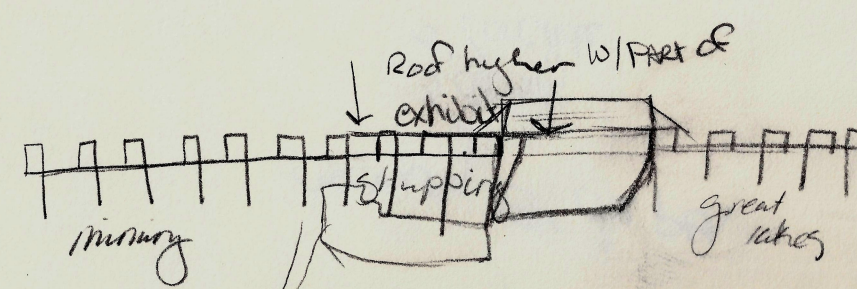 Roof higher W/PART of
exhibit
Shipping
mining
great
lakes